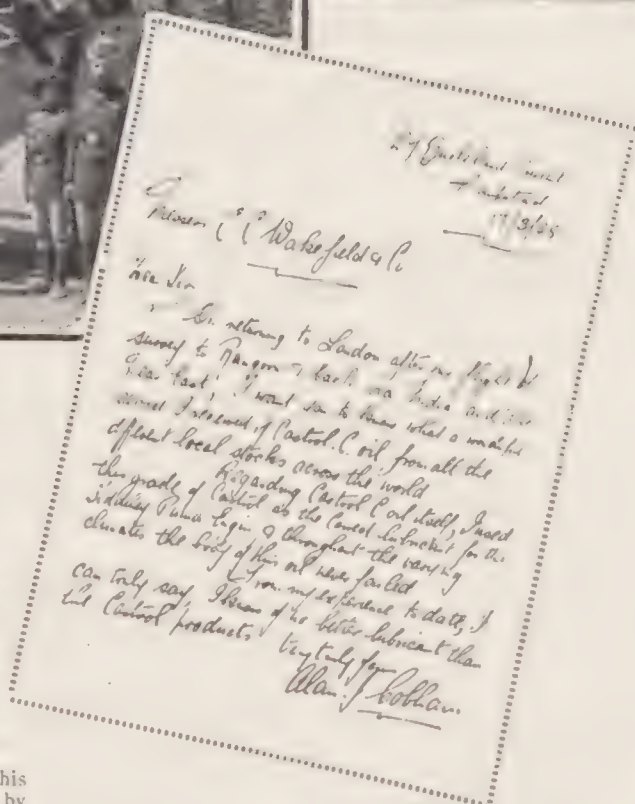 17/3/25
Messrs C C Wakefield & Co
Dear Sir
On returning to London after my flight of
survey to Rangoon & back via India and the
Near East, I want you to know what a wonderful
service I received of Castrol. C. oil from all the
different local stocks across the world
Regarding Castrol C oil itself, I used
this grade of Castrol as the correct lubricant for the
Siddeley Puma Engine & throughout the varying
climates the body of this oil never failed
From my experience to date, I
can truly say, I know of no better lubricant than
the Castrol products
Very truly yours
Alan. J Cobham
his
by